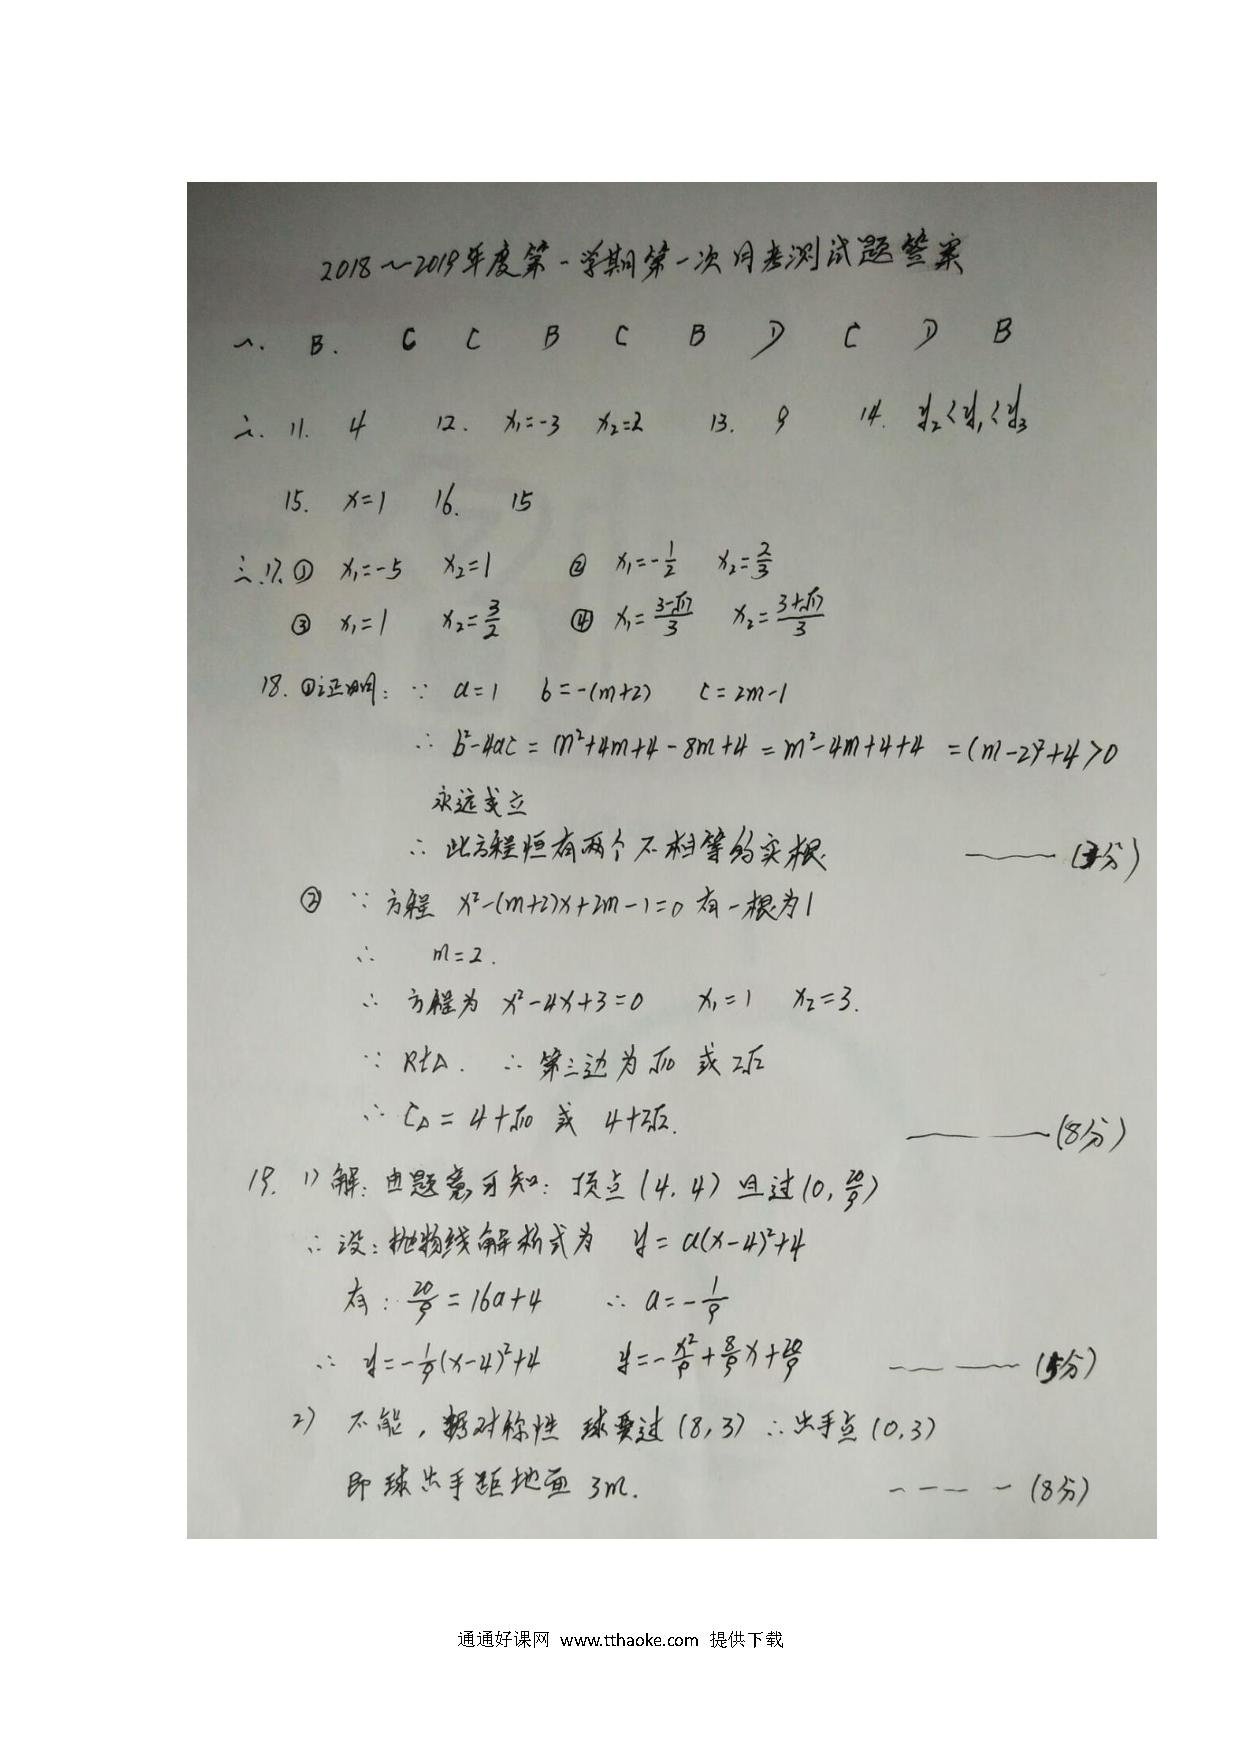 2018~2019年度第一学期第一次月考测试题答案
一. B. C C B C B D C D B
二. 11. 4 12. x₁=-3 x₂=2 13. 9 14. y₂<y₁<y₃
15. x=1 16. 15
三.17.① x₁=-5 x₂=1 ② x₁=-1/2 x₂=2/3
③ x₁=1 x₂=3/2 ④ x₁=(3-√17)/3 x₂=(3+√17)/3
18. ①证明: ∵ a=1 b=-(m+2) c=2m-1
∴ b²-4ac = m²+4m+4-8m+4 = m²-4m+4+4 =(m-2)²+4>0
永远成立
∴ 此方程恒有两个不相等的实根 ——— (3分)
② ∵ 方程 x²-(m+2)x+2m-1=0 有一根为1
∴ m=2.
∴ 方程为 x²-4x+3=0 x₁=1 x₂=3.
∵ Rt△. ∴ 第三边为√10 或 2√2
∴ C△ = 4+√10 或 4+2√2. ———(8分)
19. 1) 解: 由题意可知: 顶点 (4, 4) 且过(0, 20/9)
∴ 设: 抛物线解析式为 y = a(x-4)²+4
有: 20/9 = 16a+4 ∴ a=-1/9
∴ y=-1/9(x-4)²+4 y=-x²/9+8/9x+20/9 ——— (5分)
2) 不能, 据对称性 球要过 (8, 3) ∴出手点 (0, 3)
即球出手距地面 3m. ---- (8分)
通通好课网 www.tthaoke.com 提供下载